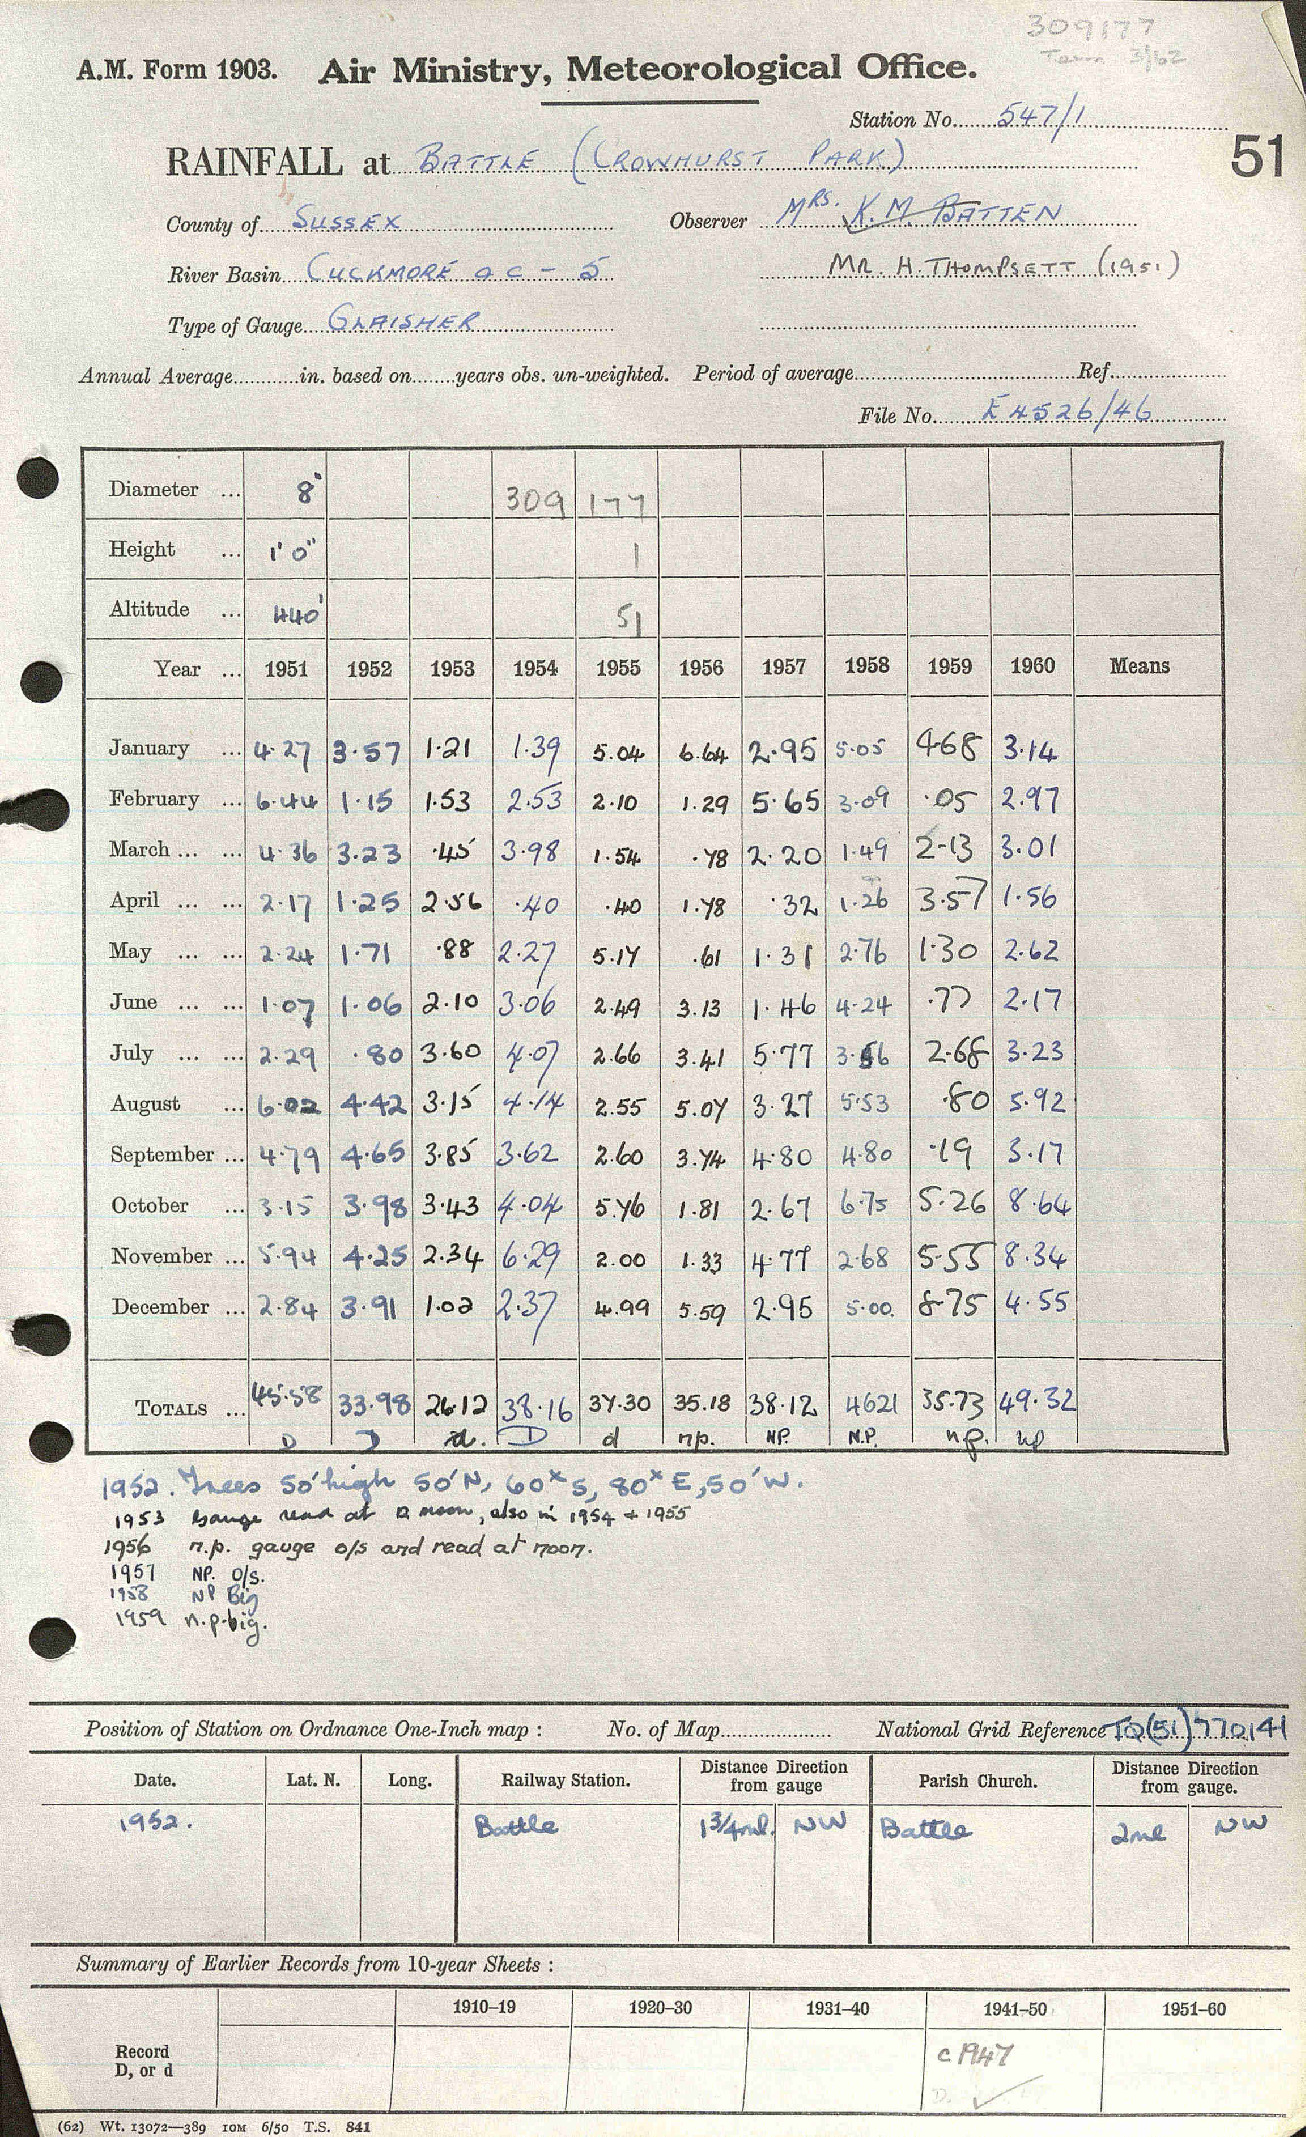 309177
Term 3/62
A.M. Form 1903. Air Ministry, Meteorological Office.
Station No. 547/1
51
RAINFALL at BATTLE (CROWHURST PARK)
County of SUSSEX Observer MRS. K.M. BATTEN
River Basin CUCKMORE a c - 5 MR H. THOMPSETT (1951)
Type of Gauge GLAISHER
Annual Average............in. based on.......years obs. un-weighted. Period of average............ Ref............
File No. E4526/46
Diameter ... 8" 309 177
Height ... 1' 0" 1
Altitude ... 440' 51
Year ... 1951 1952 1953 1954 1955 1956 1957 1958 1959 1960 Means
January ... 4.27 3.57 1.21 1.39 5.04 6.64 2.95 5.05 4.68 3.14
February ... 6.44 1.15 1.53 2.53 2.10 1.29 5.65 3.09 .05 2.97
March ... ... 4.36 3.23 .45 3.98 1.54 .78 2.20 1.49 2.13 3.01
April ... ... 2.17 1.25 2.56 .40 .40 1.78 .32 1.26 3.57 1.56
May ... ... 2.24 1.71 .88 2.27 5.17 .61 1.31 2.76 1.30 2.62
June ... ... 1.07 1.06 2.10 3.06 2.49 3.13 1.46 4.24 .77 2.17
July ... ... 2.29 .80 3.60 4.07 2.66 3.41 5.77 3.56 2.68 3.23
August ... 6.02 4.42 3.15 4.14 2.55 5.07 3.27 5.53 .80 5.92
September ... 4.79 4.65 3.85 3.62 2.60 3.74 4.80 4.80 .19 3.17
October ... 3.15 3.98 3.43 4.04 5.76 1.81 2.67 6.75 5.26 8.64
November ... 5.94 4.25 2.34 6.29 2.00 1.33 4.77 2.68 5.55 8.34
December ... 2.84 3.91 1.02 2.37 4.99 5.59 2.95 5.00 8.75 4.55
TOTALS ... 45.58 33.98 26.12 38.16 37.30 35.18 38.12 4621 35.73 49.32
D D d. D d n.p. NP. N.P. n.p. np
1952. Trees 50' high 50'N, 60x S, 80x E, 50'W.
1953 Gauge read at 12 noon, also in 1954 + 1955
1956 n.p. gauge o/s and read at noon.
1957 NP. O/s.
1958 NP Big
1959 n.p. big.
Position of Station on Ordnance One-Inch map : No. of Map............ National Grid Reference TQ(51)770141
Date. Lat. N. Long. Railway Station. Distance from gauge Direction Parish Church. Distance from gauge. Direction
1952. Battle 1¾ml. NW Battle 2ml NW
Summary of Earlier Records from 10-year Sheets :
1910–19 1920–30 1931–40 1941–50 1951–60
Record D, or d c 1947
D. ✓
(62) Wt. 13072—389 10M 6/50 T.S. 841